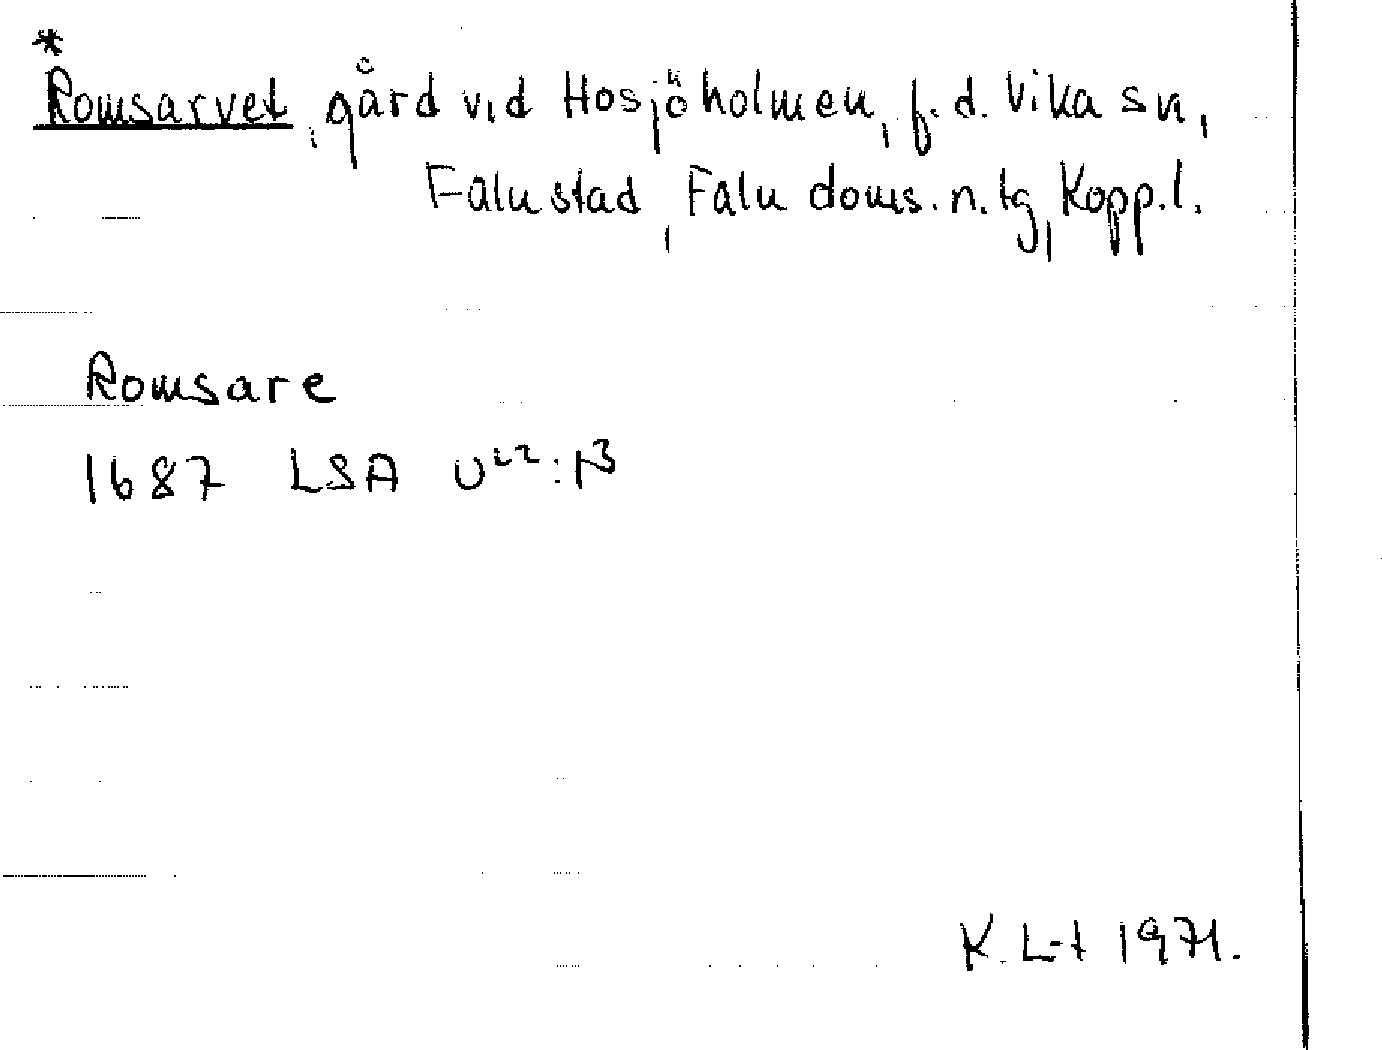 *
Romsarvet, gård vid Hosjöholmen, f.d. Vika sn,
Falu stad, Falu doms.n.tg, Kopp.l.
Romsare
1687 LSA U²²:13
K. L-t 1971.